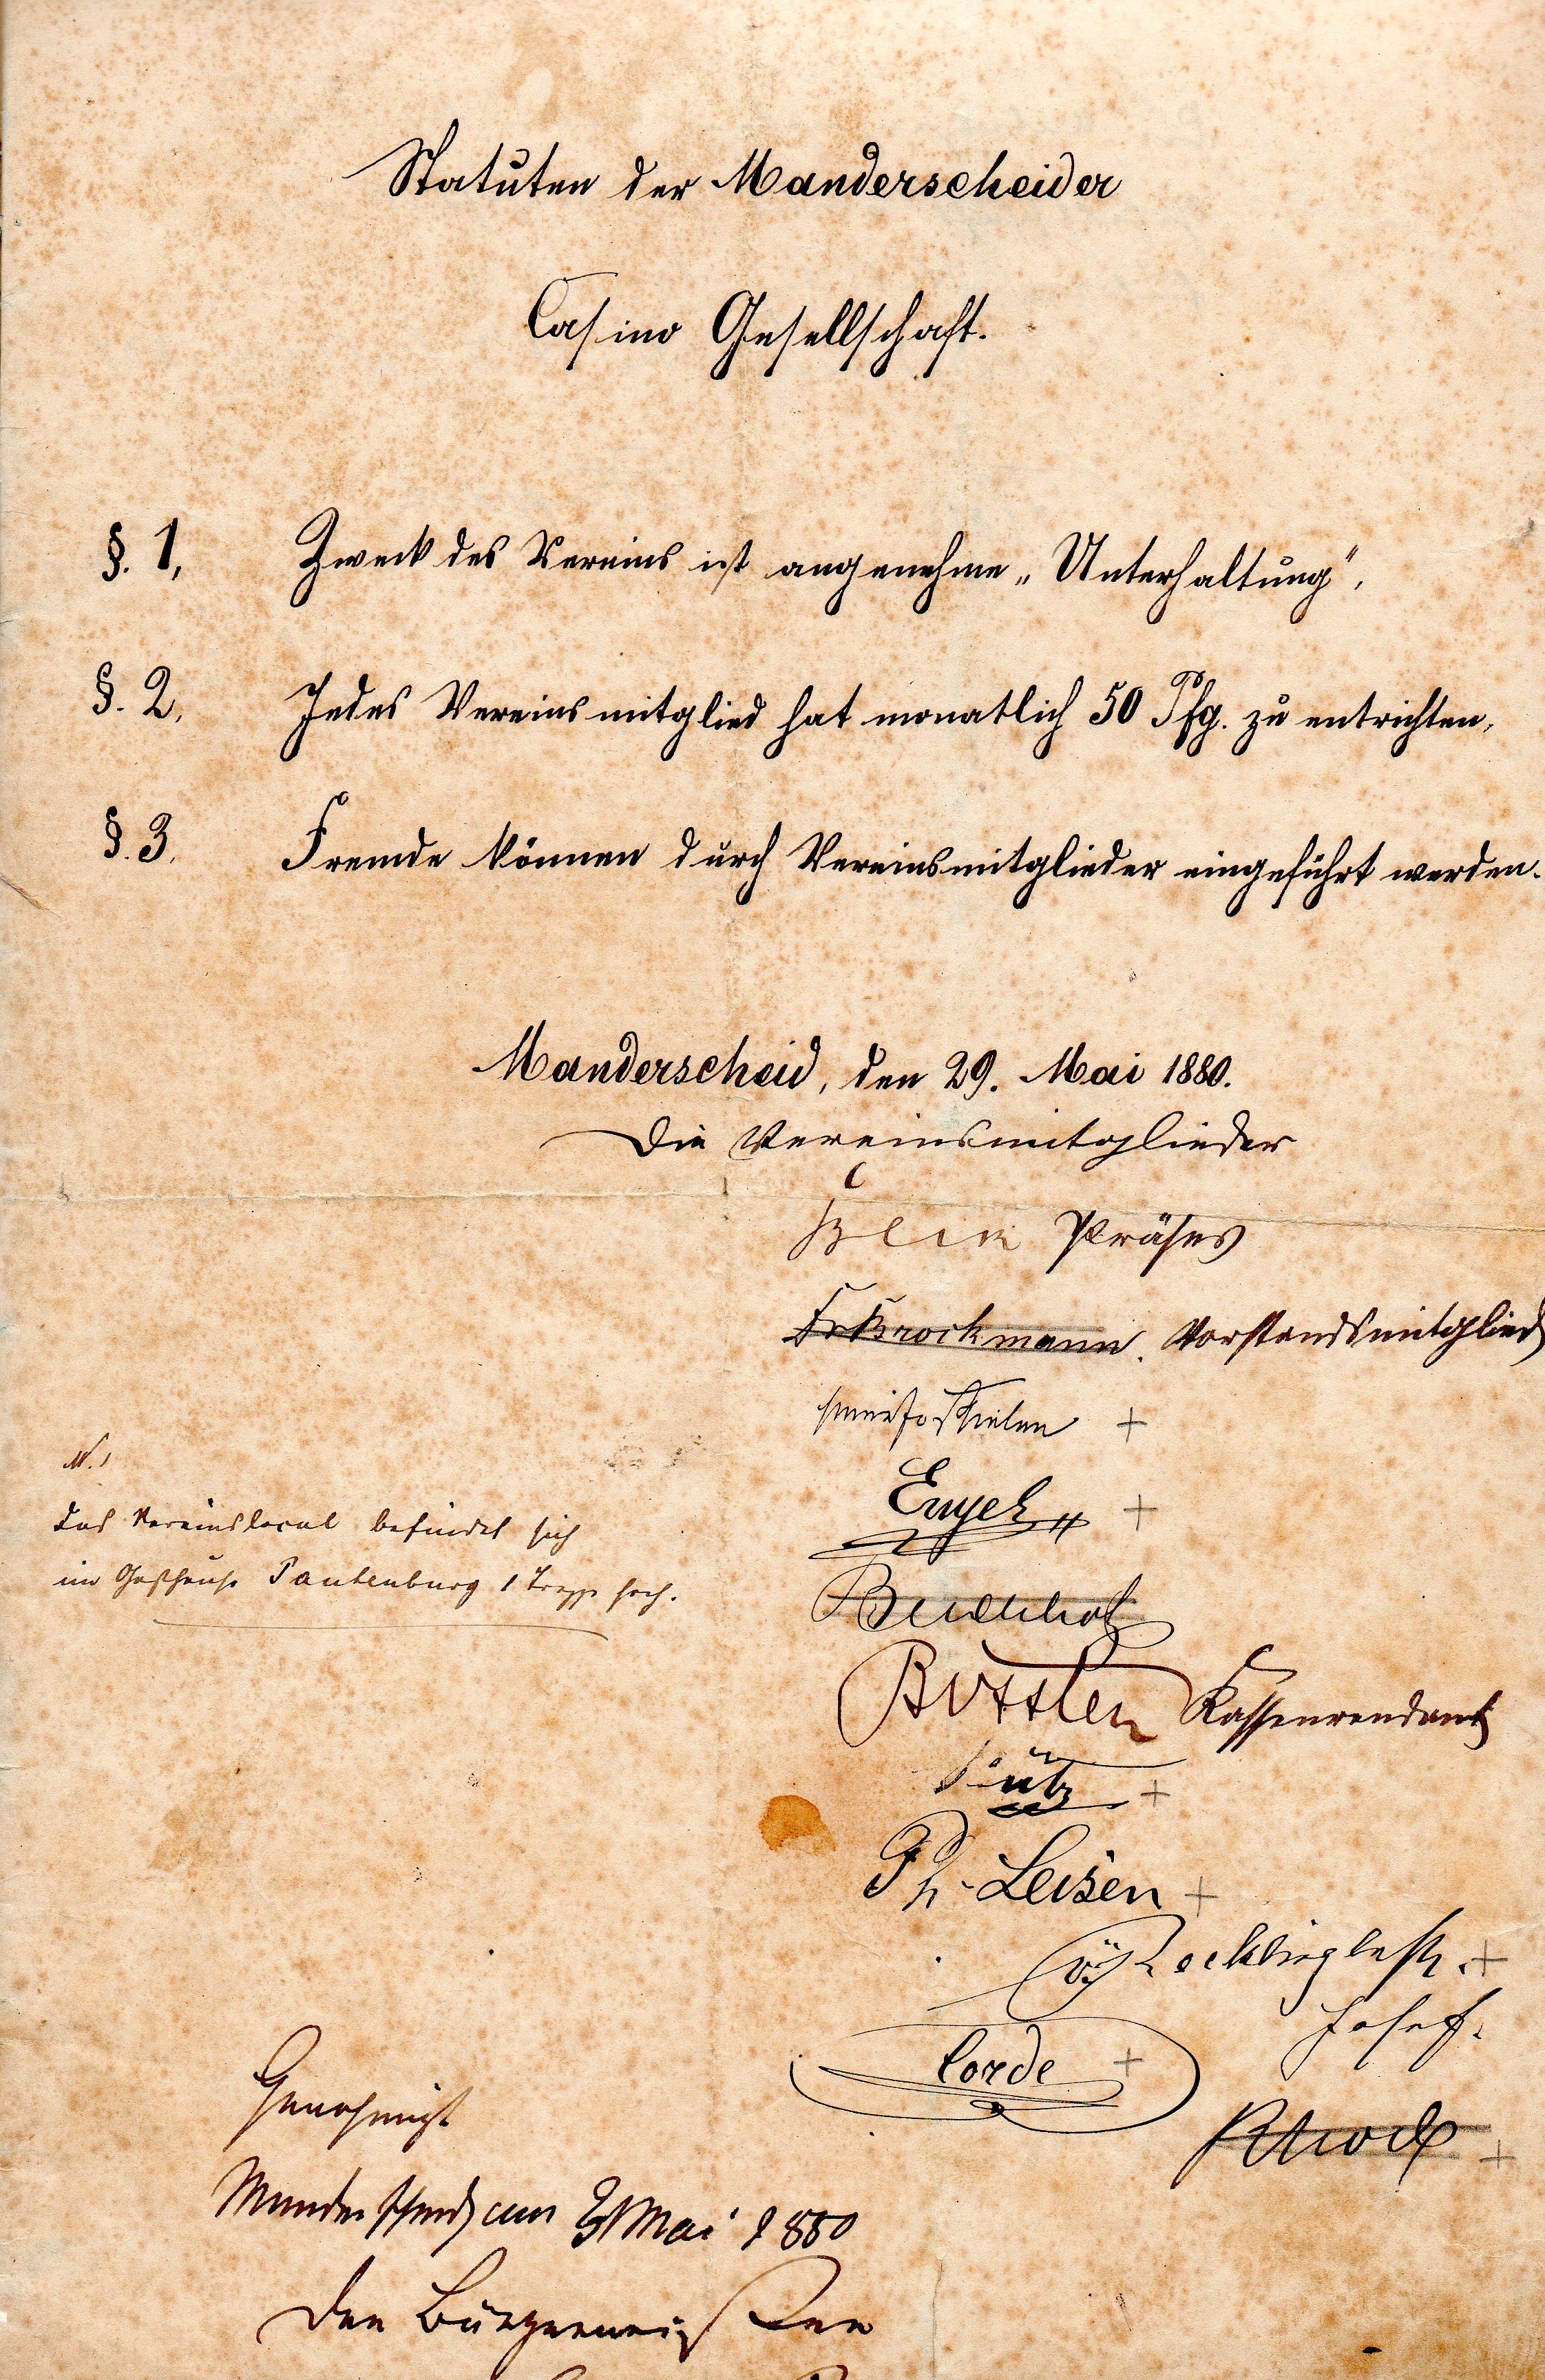 Statuten der Manderscheider
Casino Gesellschaft.
§. 1, Zweck des Vereins ist angenehme „Unterhaltung“,
§. 2, Jedes Vereinsmitglied hat monatlich 50 Pfg. zu entrichten,
§. 3, Fremde können durch Vereinsmitglieder eingeführt werden.
Manderscheid, den 29. Mai 1880.
Die Vereinsmitglieder
Präses
Brockmann. Vorstandsmitglied
Thielen +
Engel +
Kassenrendant
+
Ph. Leisen +
+
Josef.
Corde +
+
N.
Das Vereinslocal befindet sich
im Gasthause Pantenburg 1 Trepp hoch.
Genehmigt
Manderscheid am 31 Mai 1880
Der Bürgermeister